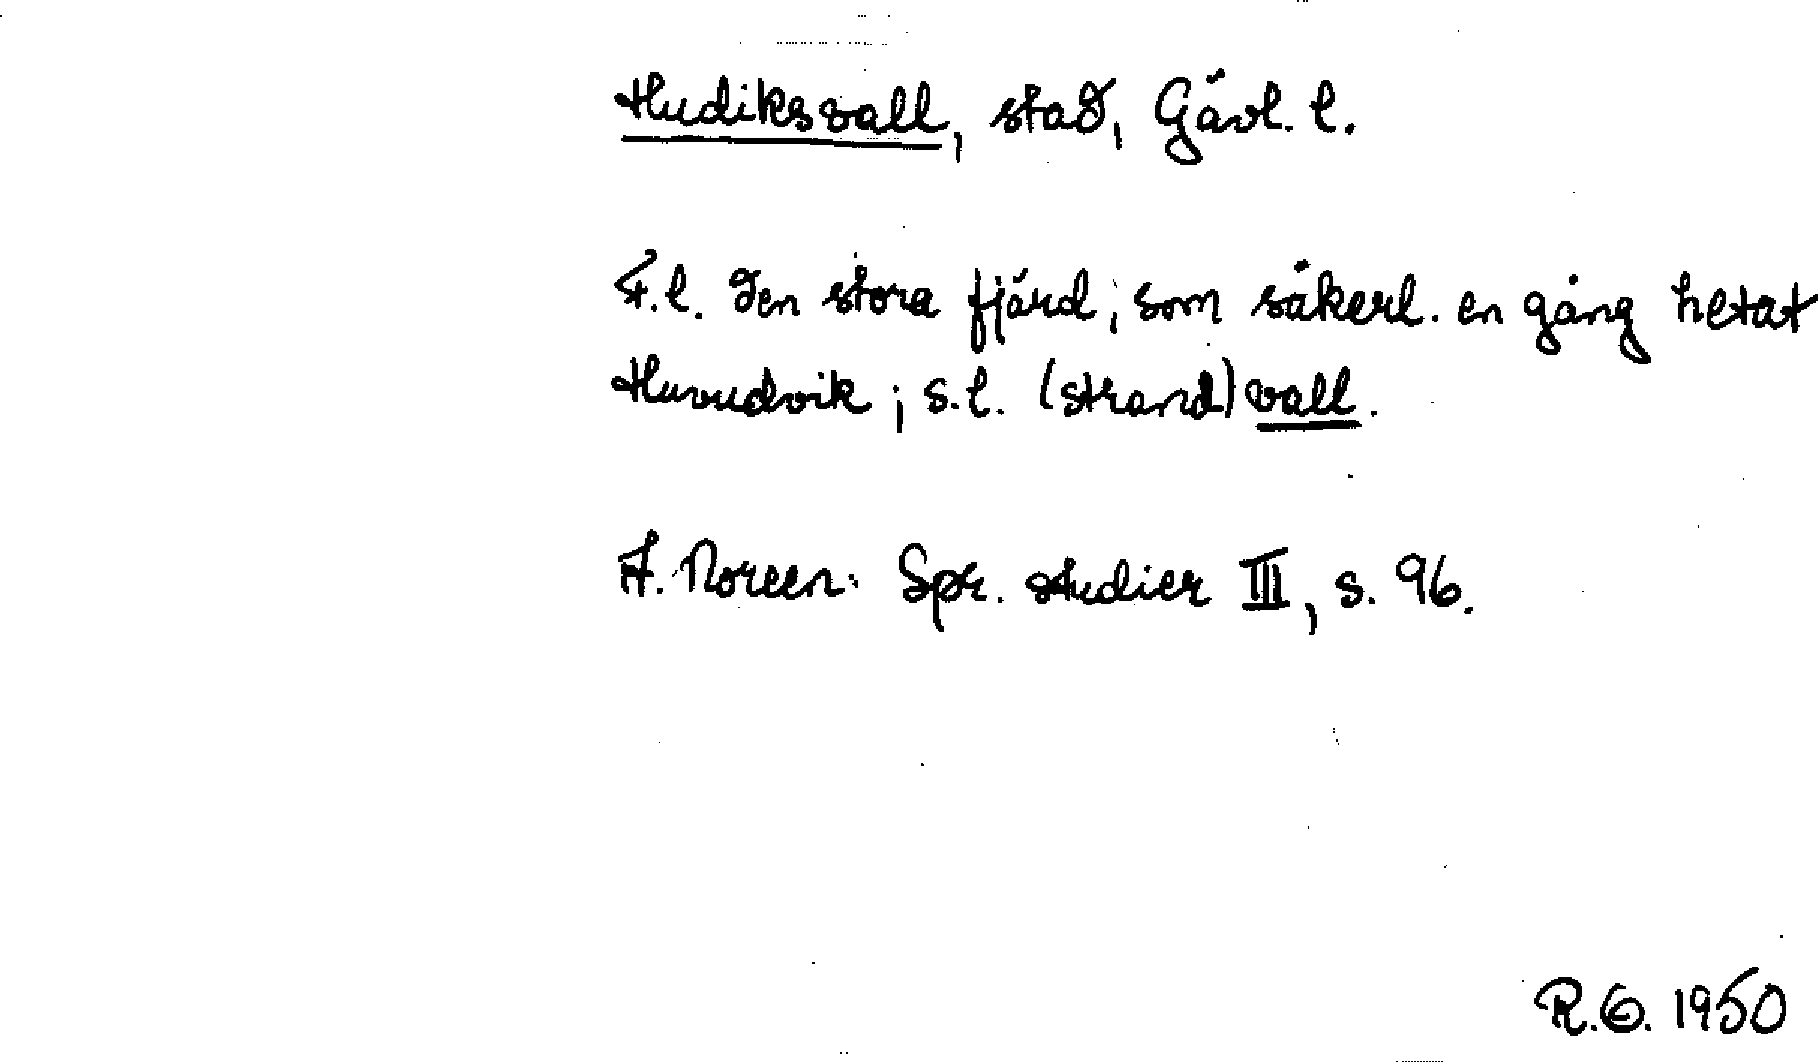 Hudiksvall, stad, Gävl. l.
F.l. den stora fjärd, som säkerl. en gång hetat
Huvudvik; s.l. (strand)vall.
A. Noreen. Spr. studier III, s. 96.
R.G. 1950